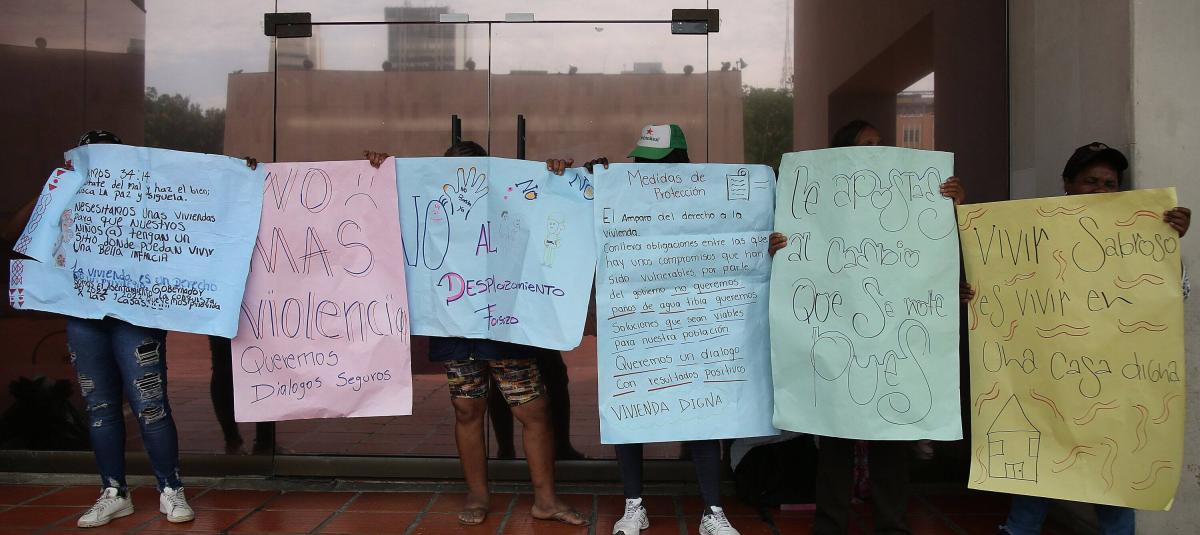 AMOS 34:14
del mal y haz el bien;
LA PAZ y siguela.
Necesitamos unas viviendas
para que nuestros
niños(a) tengan un
sitio donde puedan vivir
una bella infancia
La vivienda es un derecho
NO
MAS
Violencia
Queremos
Dialogos Seguros
NO
No
NO
AL
DESPlazamiento
Medidas de
Protección
El Amparo del derecho a la
vivienda.
Conlleva obligaciones entre las que
hay unos compromisos que han
sido vulnerables por parte
del gobierno no queremos
pañas de agua tibia queremos
Soluciones que sean viables
para nuestra población
Queremos un dialogo
Con resultados positivos
VIVIENDA DIGNA
le apostse
al Cambio
Que Se note
Pues
Vivir Sabroso
es vivir en
Una Casa digna